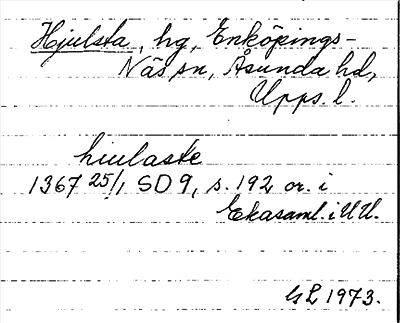 Hjulsta, hg, Enköpings-
Näs sn, Åsunda hd,
Upps. l.
hiulaste
1367 25/1 SD 9, s. 192 or. i
Ekasaml. i UU.
GL 1973.